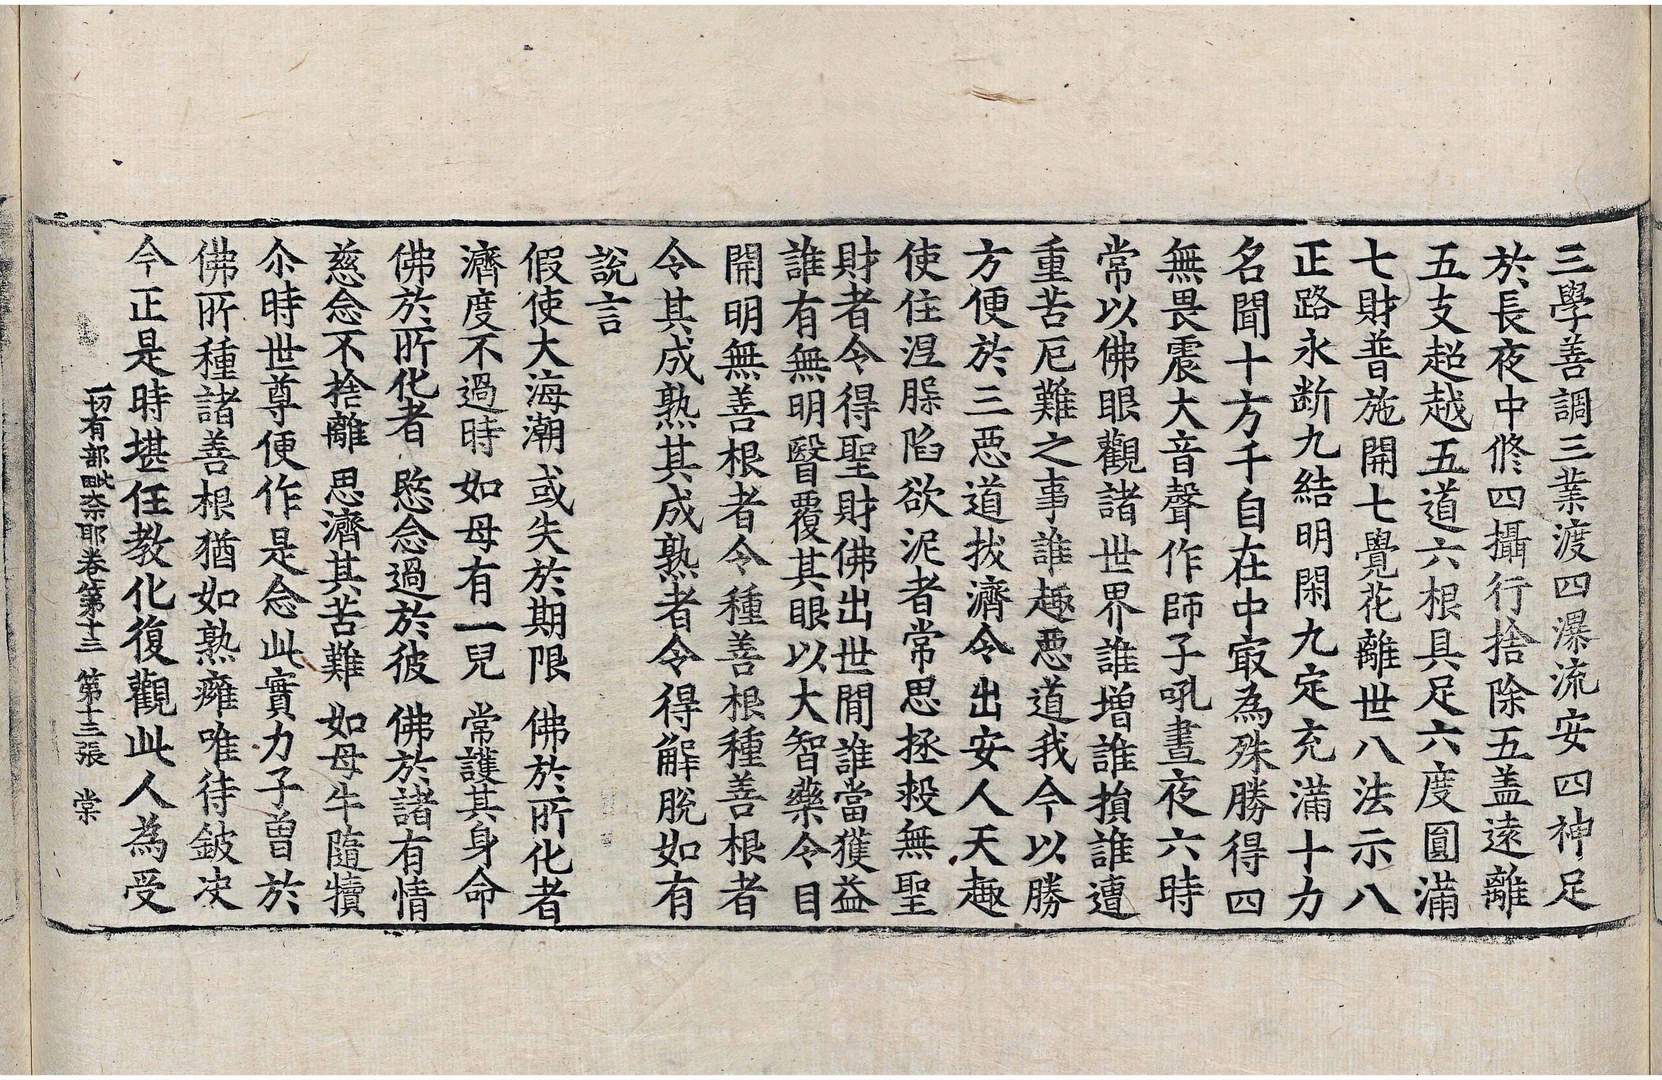 三學善調三業渡四瀑流安四神足
於長夜中修四攝行捨除五盖遠離
五支超越五道六根具足六度圓滿
七財普施開七覺花離世八法示八
正路永断九結明閑九定充滿十力
名聞十方千自在中㝡為殊勝得四
無畏震大音聲作師子吼晝夜六時
常以佛眼觀諸世界誰增誰損誰遭
重苦厄難之事誰趣惡道我今以勝
方便於三惡道拔濟令出安人天趣
使住涅槃陷欲泥者常思拯救無聖
財者令得聖財佛出世閒誰當獲益
誰有無明瞖覆其眼以大智藥令目
開明無善根者令種善根種善根者
令其成熟其成熟者令得解脫如有
說言
假使大海潮 或失於期限 佛於所化者
濟度不過時 如母有一兒 常護其身命
佛於所化者 愍念過於彼 佛於諸有情
慈念不捨離 思濟其苦難 如母牛隨犢
尒時世尊便作是念此實力子曾於
佛所種諸善根猶如熟癰唯待鈹决
今正是時堪任教化復觀此人為受
一切有部毗奈耶卷第十三 第十三張 棠